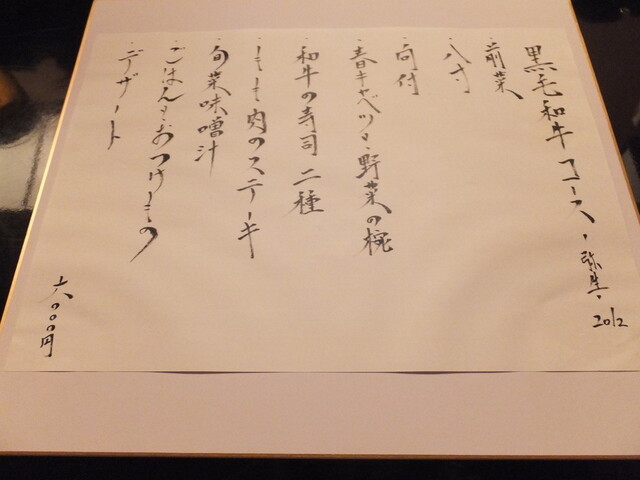 黒毛和牛コース・弥生・2012
・前菜
・八寸
・向付
・春キャベツと野菜の椀
・和牛の寿司 二種
・もも肉のステーキ
・旬菜味噌汁
・ごはんとおつけもの
・デザート
六〇〇〇円